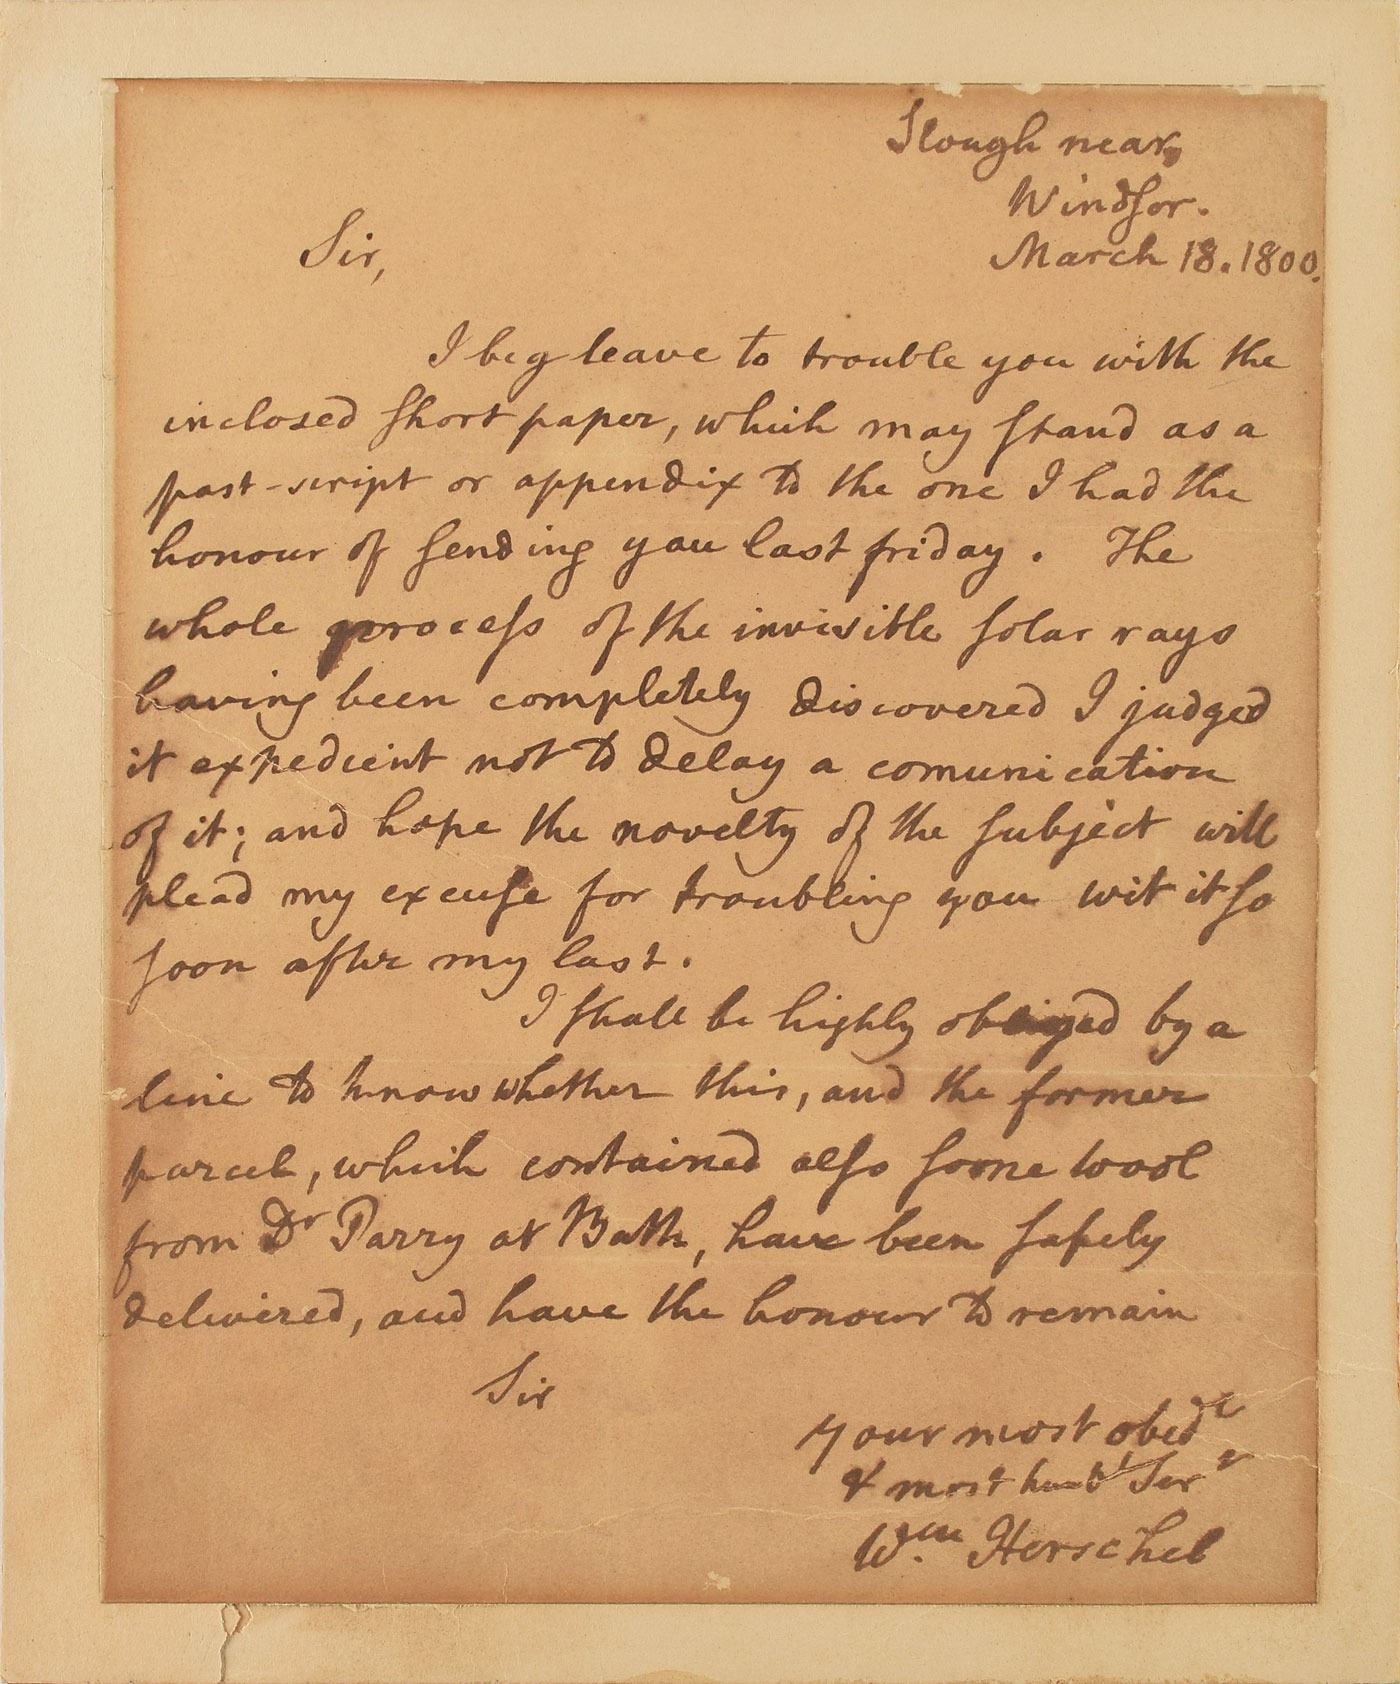 Slough near
Windsor.
March 18. 1800.
Sir,
I beg leave to trouble you with the
inclosed short paper, which may stand as a
post-script or appendix to the one I had the
honour of sending you last friday. The
whole process of the invisible solar rays
having been completely discovered I judged
it expedient not to delay a comunication
of it; and hope the novelty of the subject will
plead my excuse for troubling you wit it so
soon after my last.
I shall be highly obliged by a
line to know whether this, and the former
parcel, which contained also some wool
from Dr Parry at Bath, have been safely
delivered, and have the honour to remain
Sir
Your most obedt
& most humbl Sert
Wm. Herschel